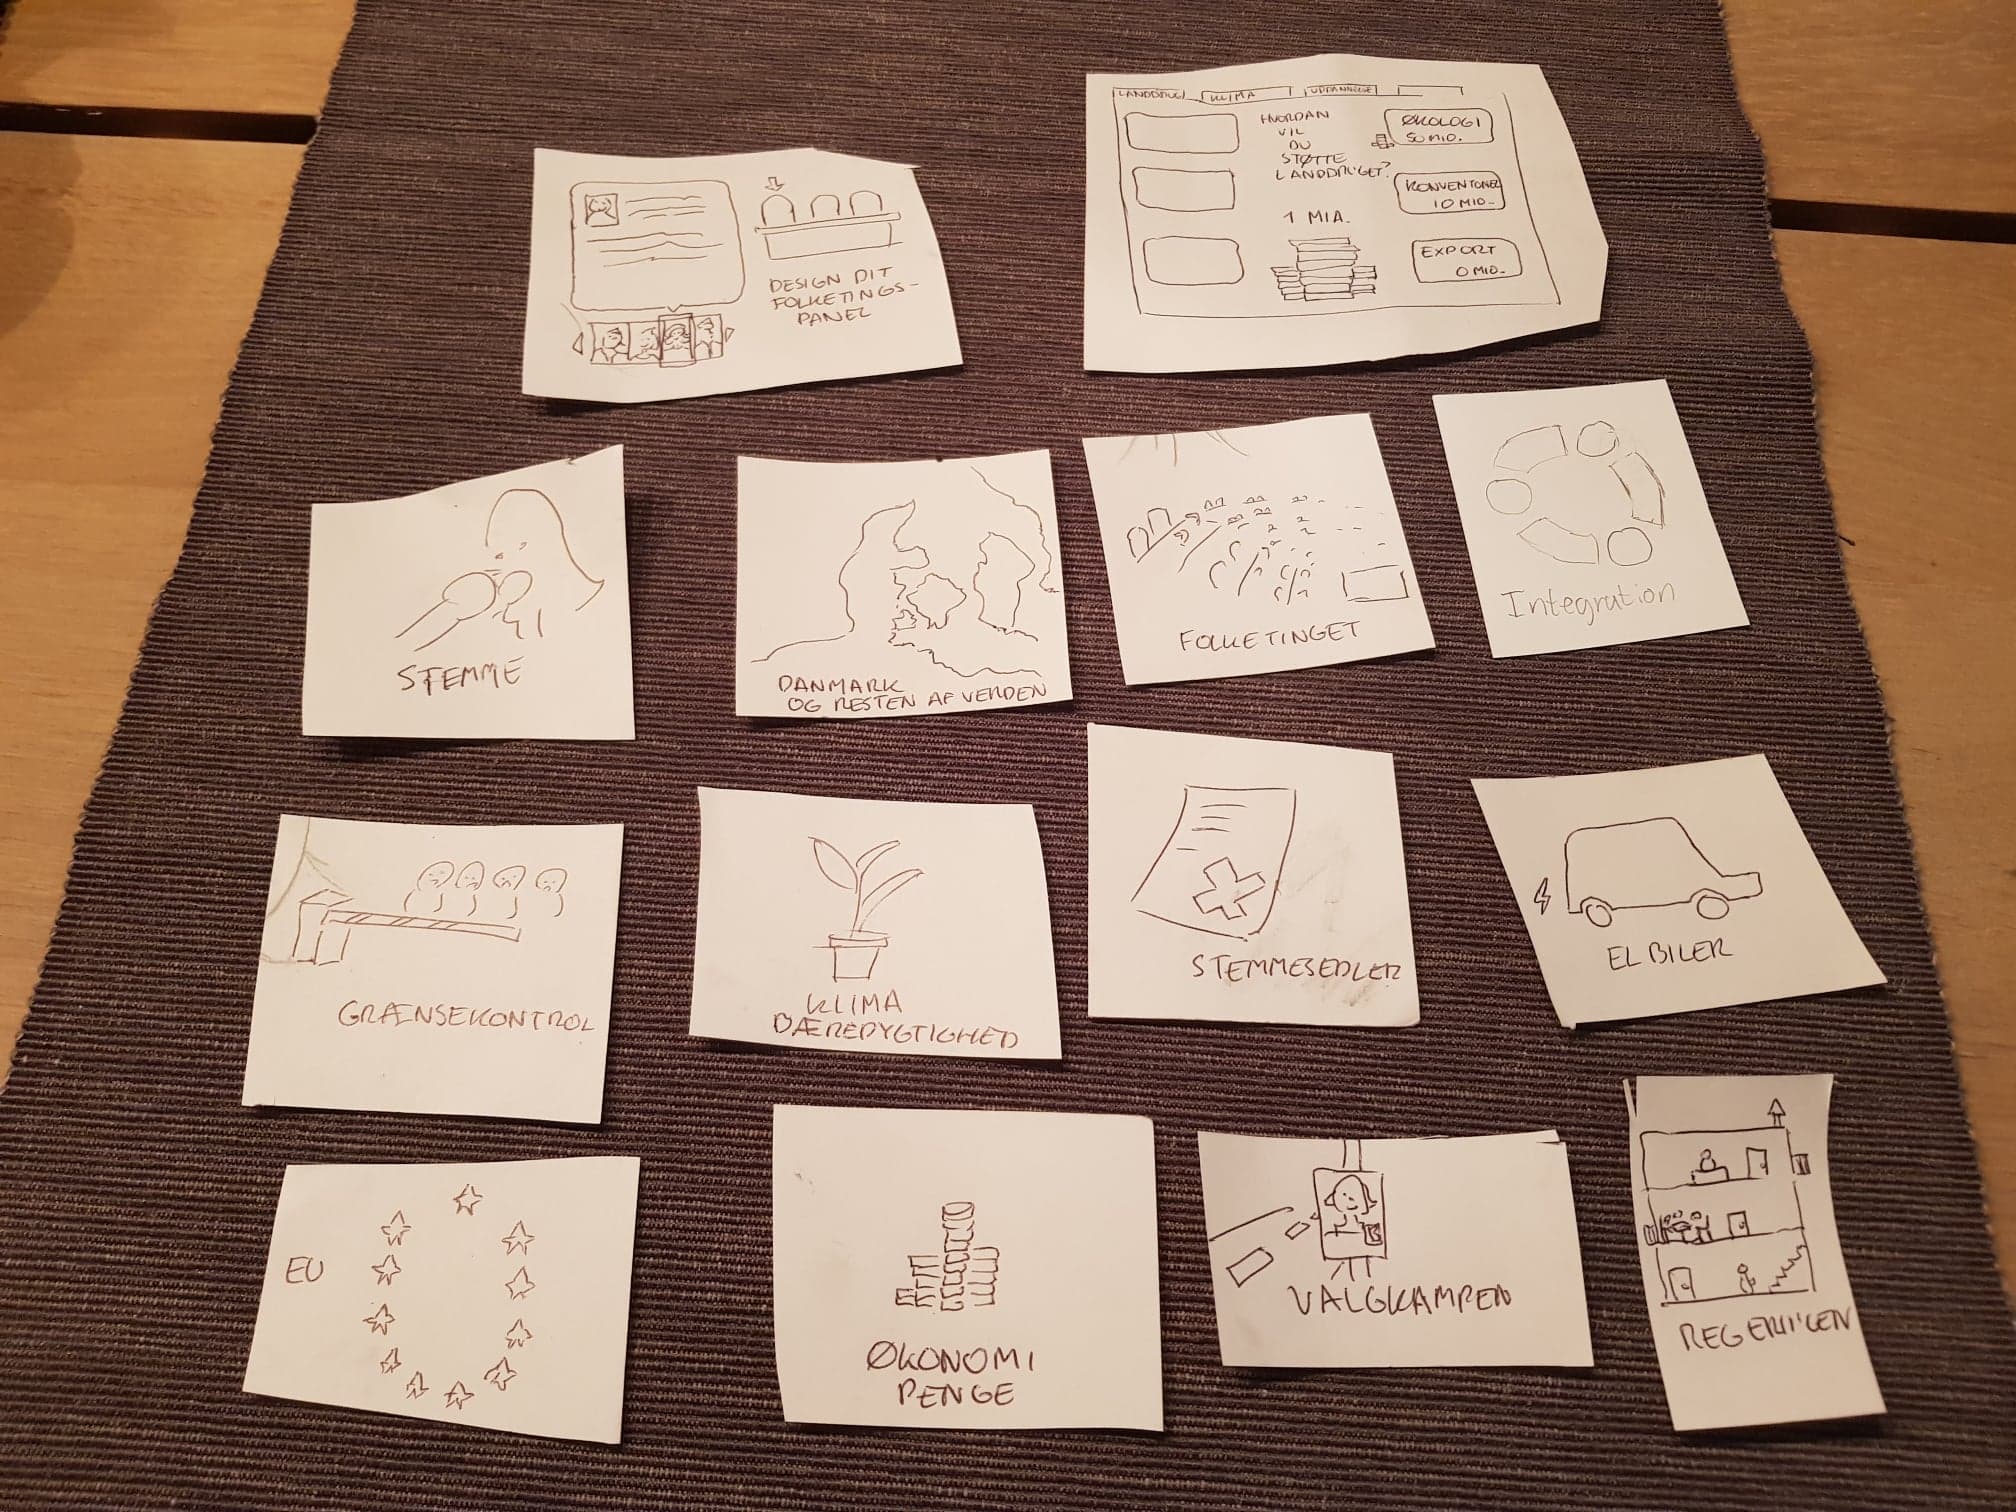 DESIGN DIT
FOLKETINGS-
PANEL
LANDBRUG
KLIMA
UDDANNELSE
HVORDAN
VIL
DU
STØTTE
LANDBRUGET?
1 MIA.
ØKOLOGI
50 MIO.
KONVENTONEL
10 MIO.
EXPORT
0 MIO.
STEMME
DANMARK
OG RESTEN AF VERDEN
FOLKETINGET
Integration
GRÆNSEKONTROL
KLIMA
BÆREDYGTIGHED
STEMMESEDLER
EL BILER
EU
ØKONOMI
PENGE
VALGKAMPEN
REGERINGEN